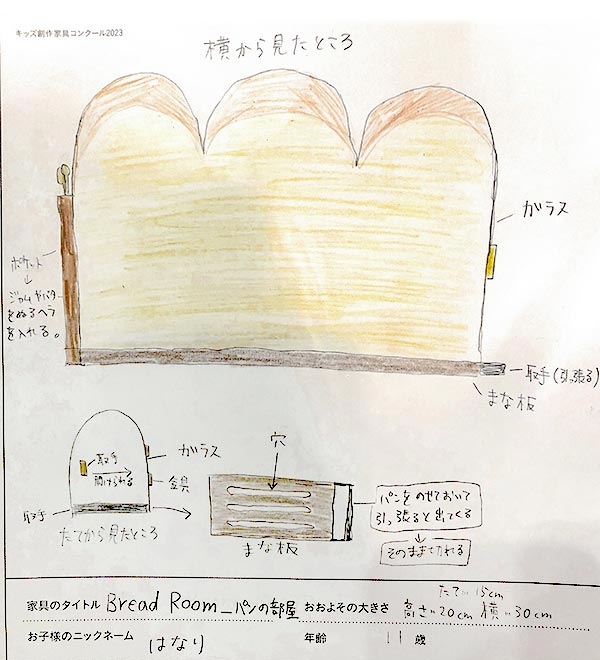 キッズ創作家具コンクール2023
横から見たところ
ガラス
ポケット
↓
ジャムやバター
をぬるヘラ
を入れる。
取手(引っ張る)
まな板
取手
開けられる
ガラス
金具
取手
たてから見たところ
穴
まな板
パンをのせておいて
引っ張ると出てくる
↓
そのまま切れる
家具のタイトル Bread Room_パンの部屋 おおよその大きさ たて=15cm
高さ=20cm 横=30cm
お子様のニックネーム はなり 年齢 11歳